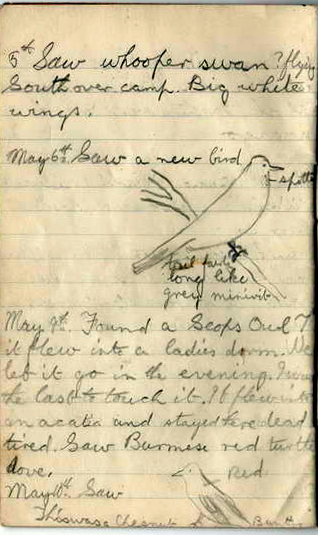 5th Saw whooper swan? flying
South over camp. Big white
wings.
May 6th Saw a new bird
spotted
tail fairly
long like
grey minivit
May 9th. Found a Scops Owl
it flew into a ladies dorm. We
let it go in the evening. I was
the last to touch it. It flew into
an acatia and stayed there dead
tired. Saw Burmese red turtle
dove.
Red
May 11th. Saw
This was a Chesnut